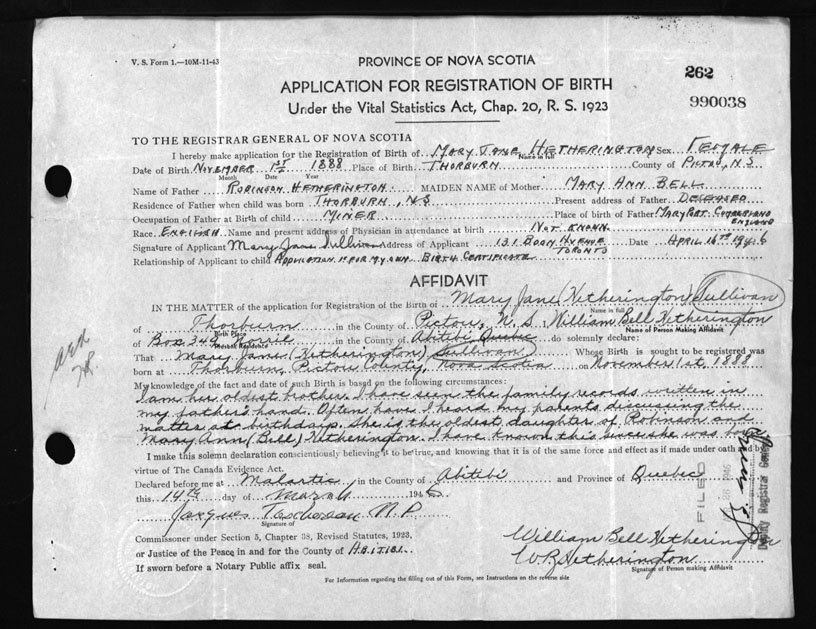 V. S. Form 1.—10M-11-43
PROVINCE OF NOVA SCOTIA
262
APPLICATION FOR REGISTRATION OF BIRTH
990038
Under the Vital Statistics Act, Chap. 20, R. S. 1923
TO THE REGISTRAR GENERAL OF NOVA SCOTIA
I hereby make application for the Registration of Birth of MARY JANE HETHERINGTON Sex FEMALE
Name in full
Date of Birth NOVEMBER 1ST 1888 Place of Birth THORBURN County of PICTOU, N.S.
Month Date Year
Name of Father ROBINSON HETHERINGTON MAIDEN NAME of Mother MARY ANN BELL
Residence of Father when child was born THORBURN, N.S Present address of Father DECEASED
Occupation of Father at Birth of child MINER Place of birth of Father MARYPORT CUMBERLAND ENGLAND
Race ENGLISH Name and present address of Physician in attendance at birth NOT KNOWN
Signature of Applicant Mary Jane Sullivan Address of Applicant 131 BOON AVENUE TORONTO Date APRIL 16TH 1946
Relationship of Applicant to child APPLICATION IS FOR MY OWN BIRTH CERTIFICATE
AFFIDAVIT
IN THE MATTER of the application for Registration of the Birth of Mary Jane (Hetherington) Sullivan
Name in full
of Thorburn in the County of Pictou, N. S. William Bell Hetherington
Birth Place Name of Person Making Affidavit
of Box 349 in the County of Abitibi Quebec do solemnly declare:
Present Residence
That Mary Jane (Hetherington) Sullivan Whose Birth is sought to be registered was
born at Thorburn, Pictou County, Nova Scotia on November 1st, 1888
My knowledge of the fact and date of such Birth is based on the following circumstances:
I am her oldest brother. I have seen the family records written in
my father's hand. Often have I heard my parents discussing the
matter at birthdays. She is the oldest daughter of Robinson and
Mary Ann (Bell) Hetherington. I have known this since she was born
I make this solemn declaration conscientiously believing it to be true, and knowing that it is of the same force and effect as if made under oath and by
virtue of The Canada Evidence Act.
Declared before me at Malartic in the County of Abitibi and Province of Quebec
this 14th day of March 1946
Jacques M.P.
Signature of
Commissioner under Section 5, Chapter 38, Revised Statutes, 1923,
or Justice of the Peace in and for the County of ABITIBI.
If sworn before a Notary Public affix seal.
William Bell Hetherington
W.B. Hetherington
Signature of Person making Affidavit
For Information regarding the filling out of this Form, see Instructions on the reverse side
FILED
1946
Deputy Registrar General